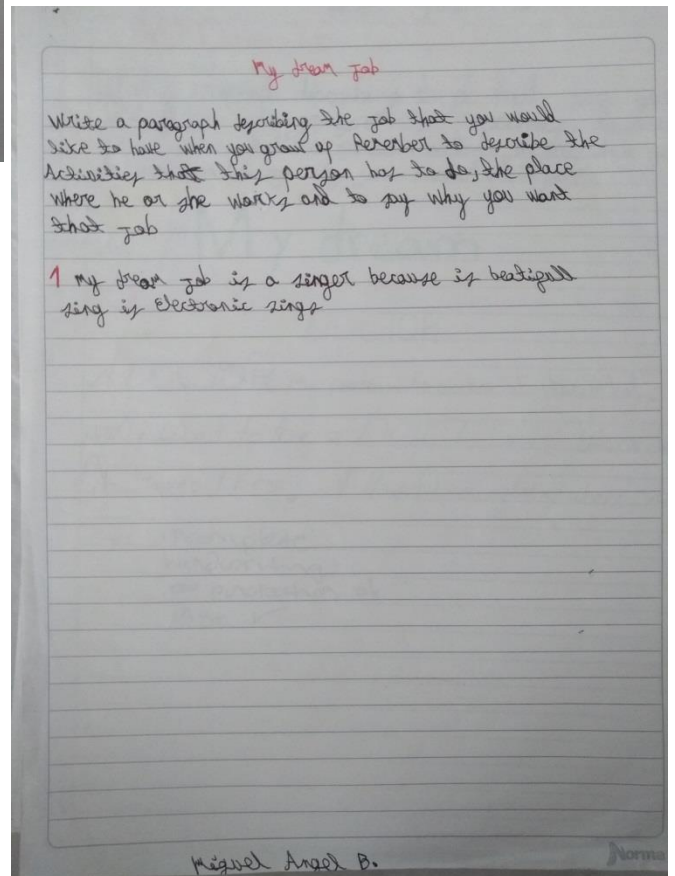 My dream Job
Write a paragraph describing the Job that you would
like to have when you grouf up Remenber to describe the
Activities that this person has to do, the place
where he or she works and to say why you want
that Job
1 My dream Job is a singer because is beatifull
sing is Electronic sings
Miguel Angel B.
Norma